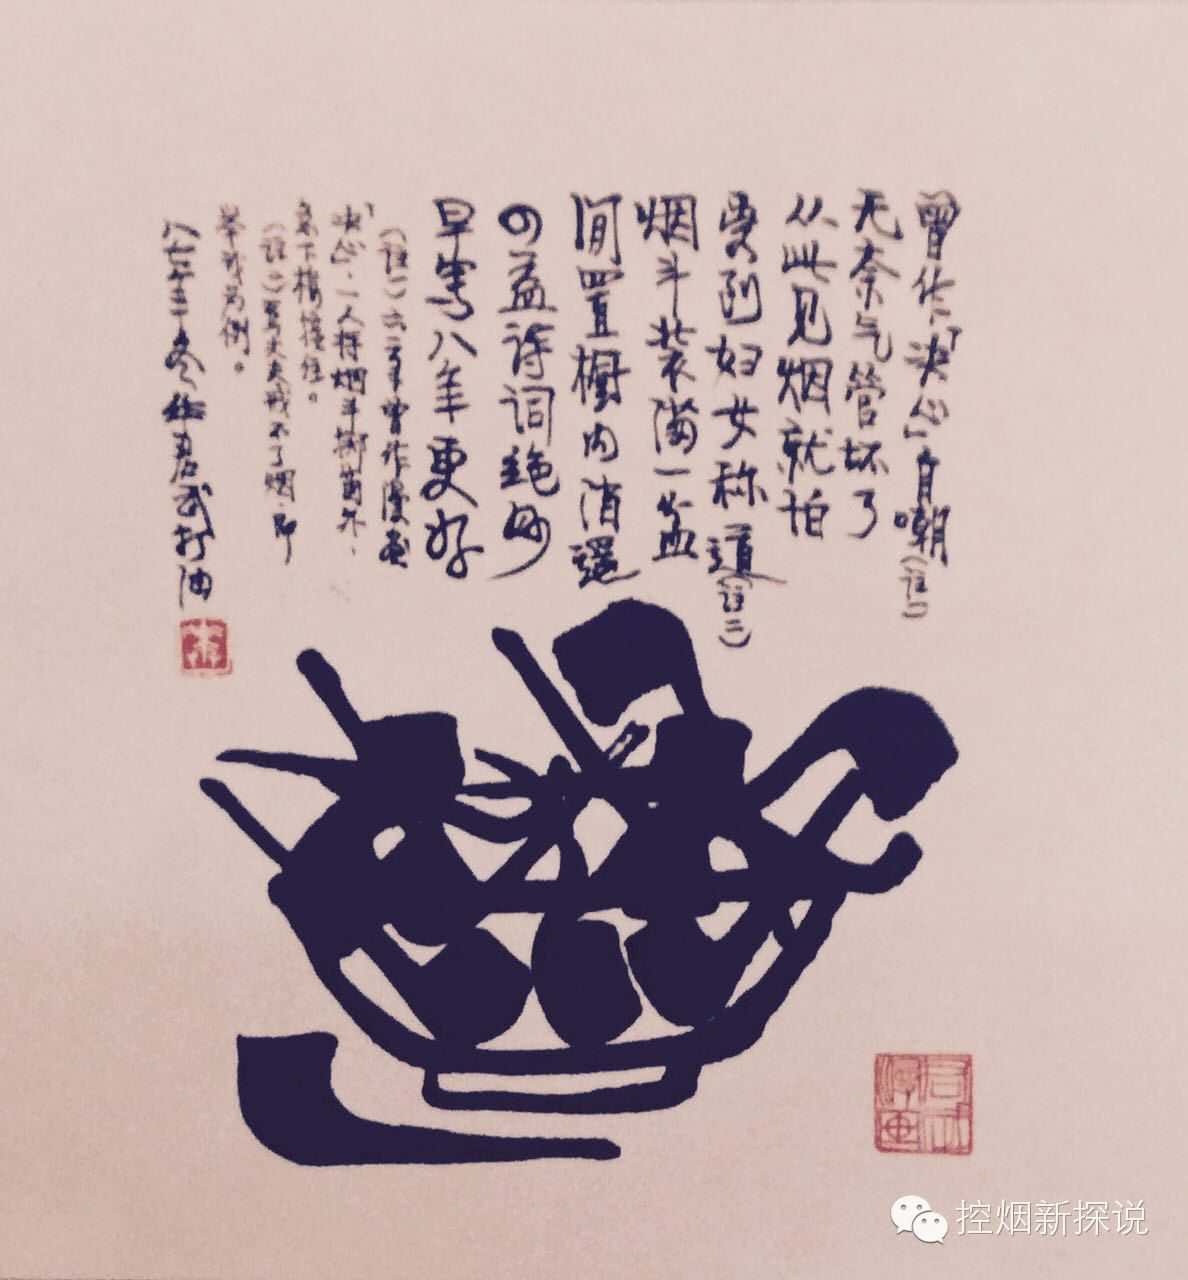 曾作「决心」自嘲(註一)
无奈气管坏了
从此见烟就怕
要到妇女称道(註二)
烟斗装满一盆
闲置橱内消遥
的益诗词绝妙
早写八年更好
(註一)六二年曾作漫画
「决心」,一人将烟斗掷窗外、
急下楼接住。
(註二)骂丈夫戒不了烟,即
举我为例。
八七年三冬 华君武打油
控烟新探说